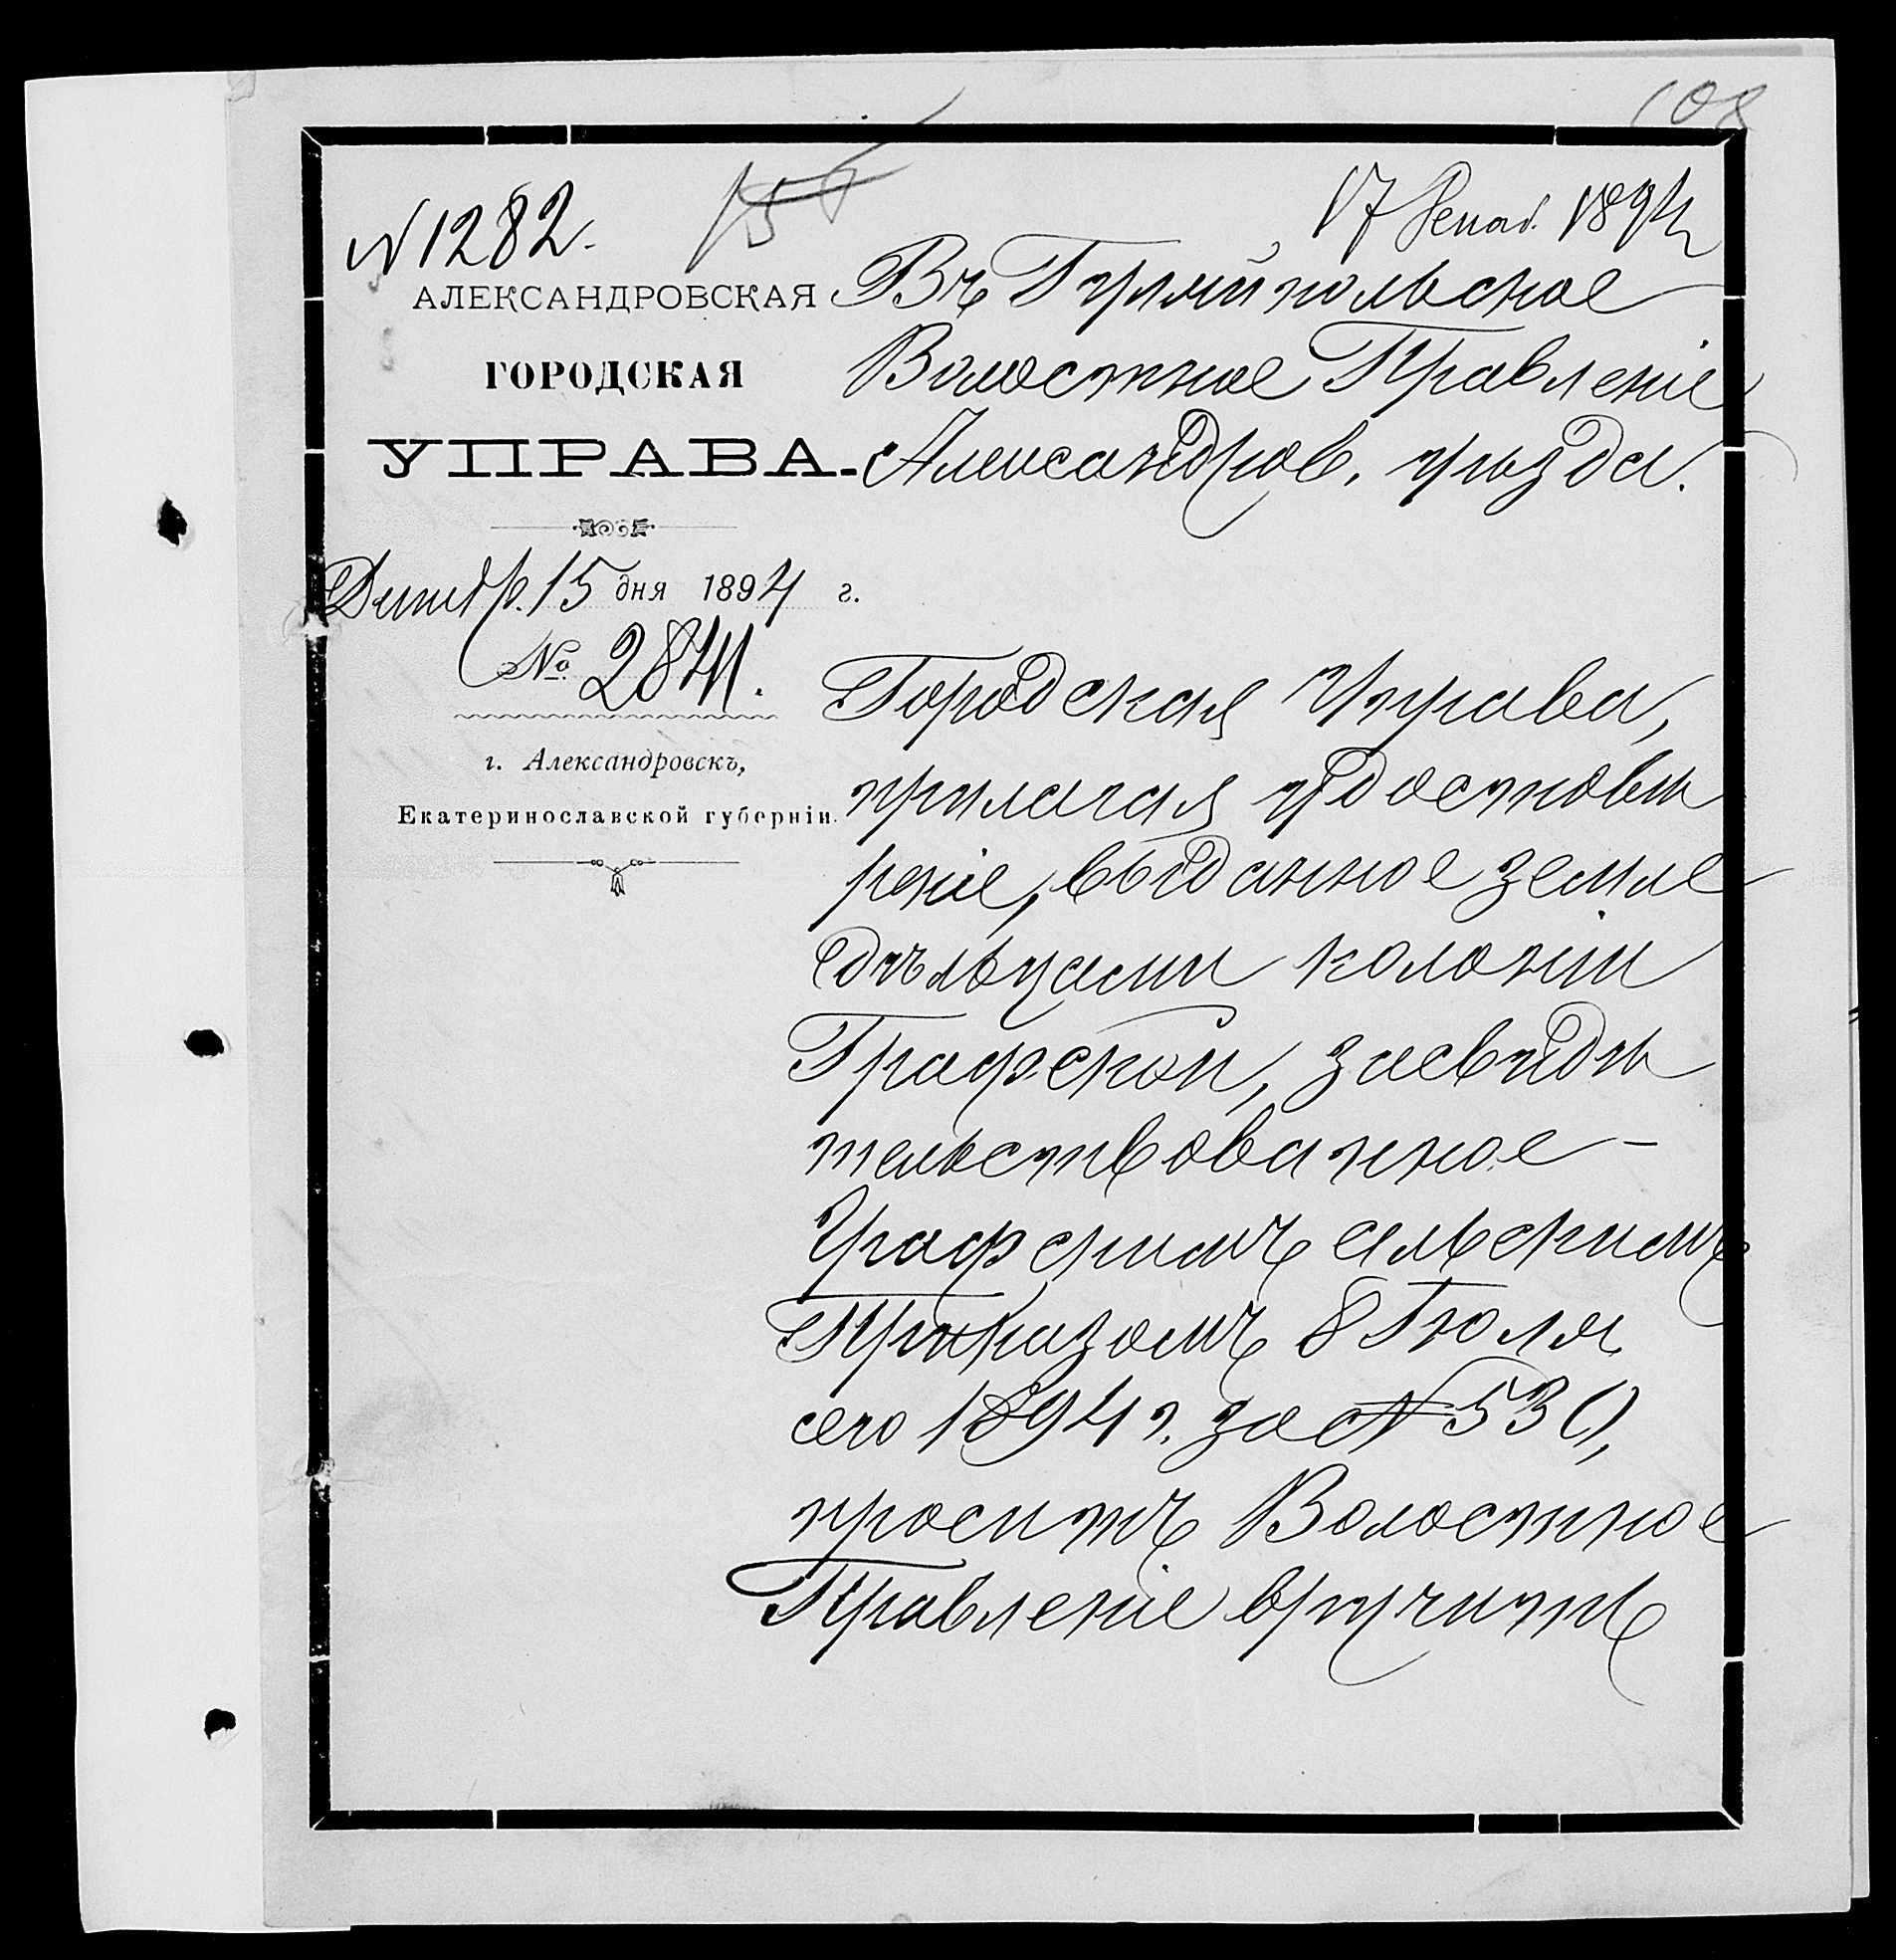 108
N 1282.
17 Декаб. 1894
АЛЕКСАНДРОВСКАЯ
ГОРОДСКАЯ
УПРАВА.
Декабр. 15 дня 1894 г.
№ 2841.
г. Александровскъ,
Екатеринославской губерніи.
Въ Гуляйпольское
Волостное Правленіе
Александров. уѣзда.
Городская Управа,
прилагая удостовѣ
реніе, выданное земле
дѣльцами колоніи
Графской, засвидѣ
тельствованное –
Графскимъ сельскимъ
Приказомъ 8 Іюля
сего 1894 г. за № 530,
проситъ Волостное
Правленіе вручить